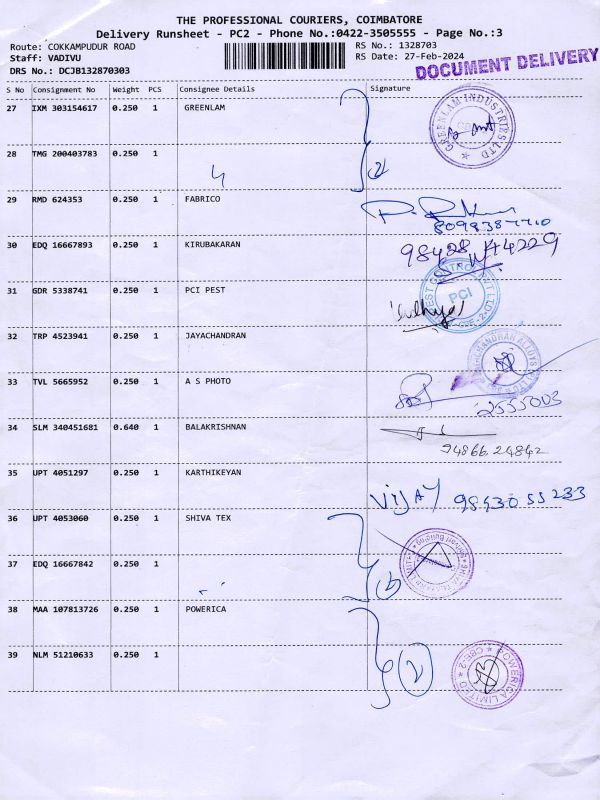 THE PROFESSIONAL COURIERS, COIMBATORE
Delivery Runsheet - PC2 - Phone No.:0422-3505555 - Page No.:3
Route: COKKAMPUDUR ROAD
RS No.: 1328703
Staff: VADIVU
RS Date: 27-Feb-2024
DRS No.: DCJB132870303
DOCUMENT DELIVERY
S No Consignment No Weight PCS Consignee Details Signature
27 IXM 303154617 0.250 1 GREENLAM
GREENLAM INDUSTRIES LTD
28 TMG 200403783 0.250 1
29 RMD 624353 0.250 1 FABRICO
30 EDQ 16667893 0.250 1 KIRUBAKARAN
31 GDR 5338741 0.250 1 PCI PEST
PCI
32 TRP 4523941 0.250 1 JAYACHANDRAN
33 TVL 5665952 0.250 1 A S PHOTO
34 SLM 340451681 0.640 1 BALAKRISHNAN
94866 24842
35 UPT 4051297 0.250 1 KARTHIKEYAN
VIJAY 98430 55233
36 UPT 4053060 0.250 1 SHIVA TEX
37 EDQ 16667842 0.250 1
38 MAA 107813726 0.250 1 POWERICA
39 NLM 51210633 0.250 1
POWERICA LIMITED
CBE-2